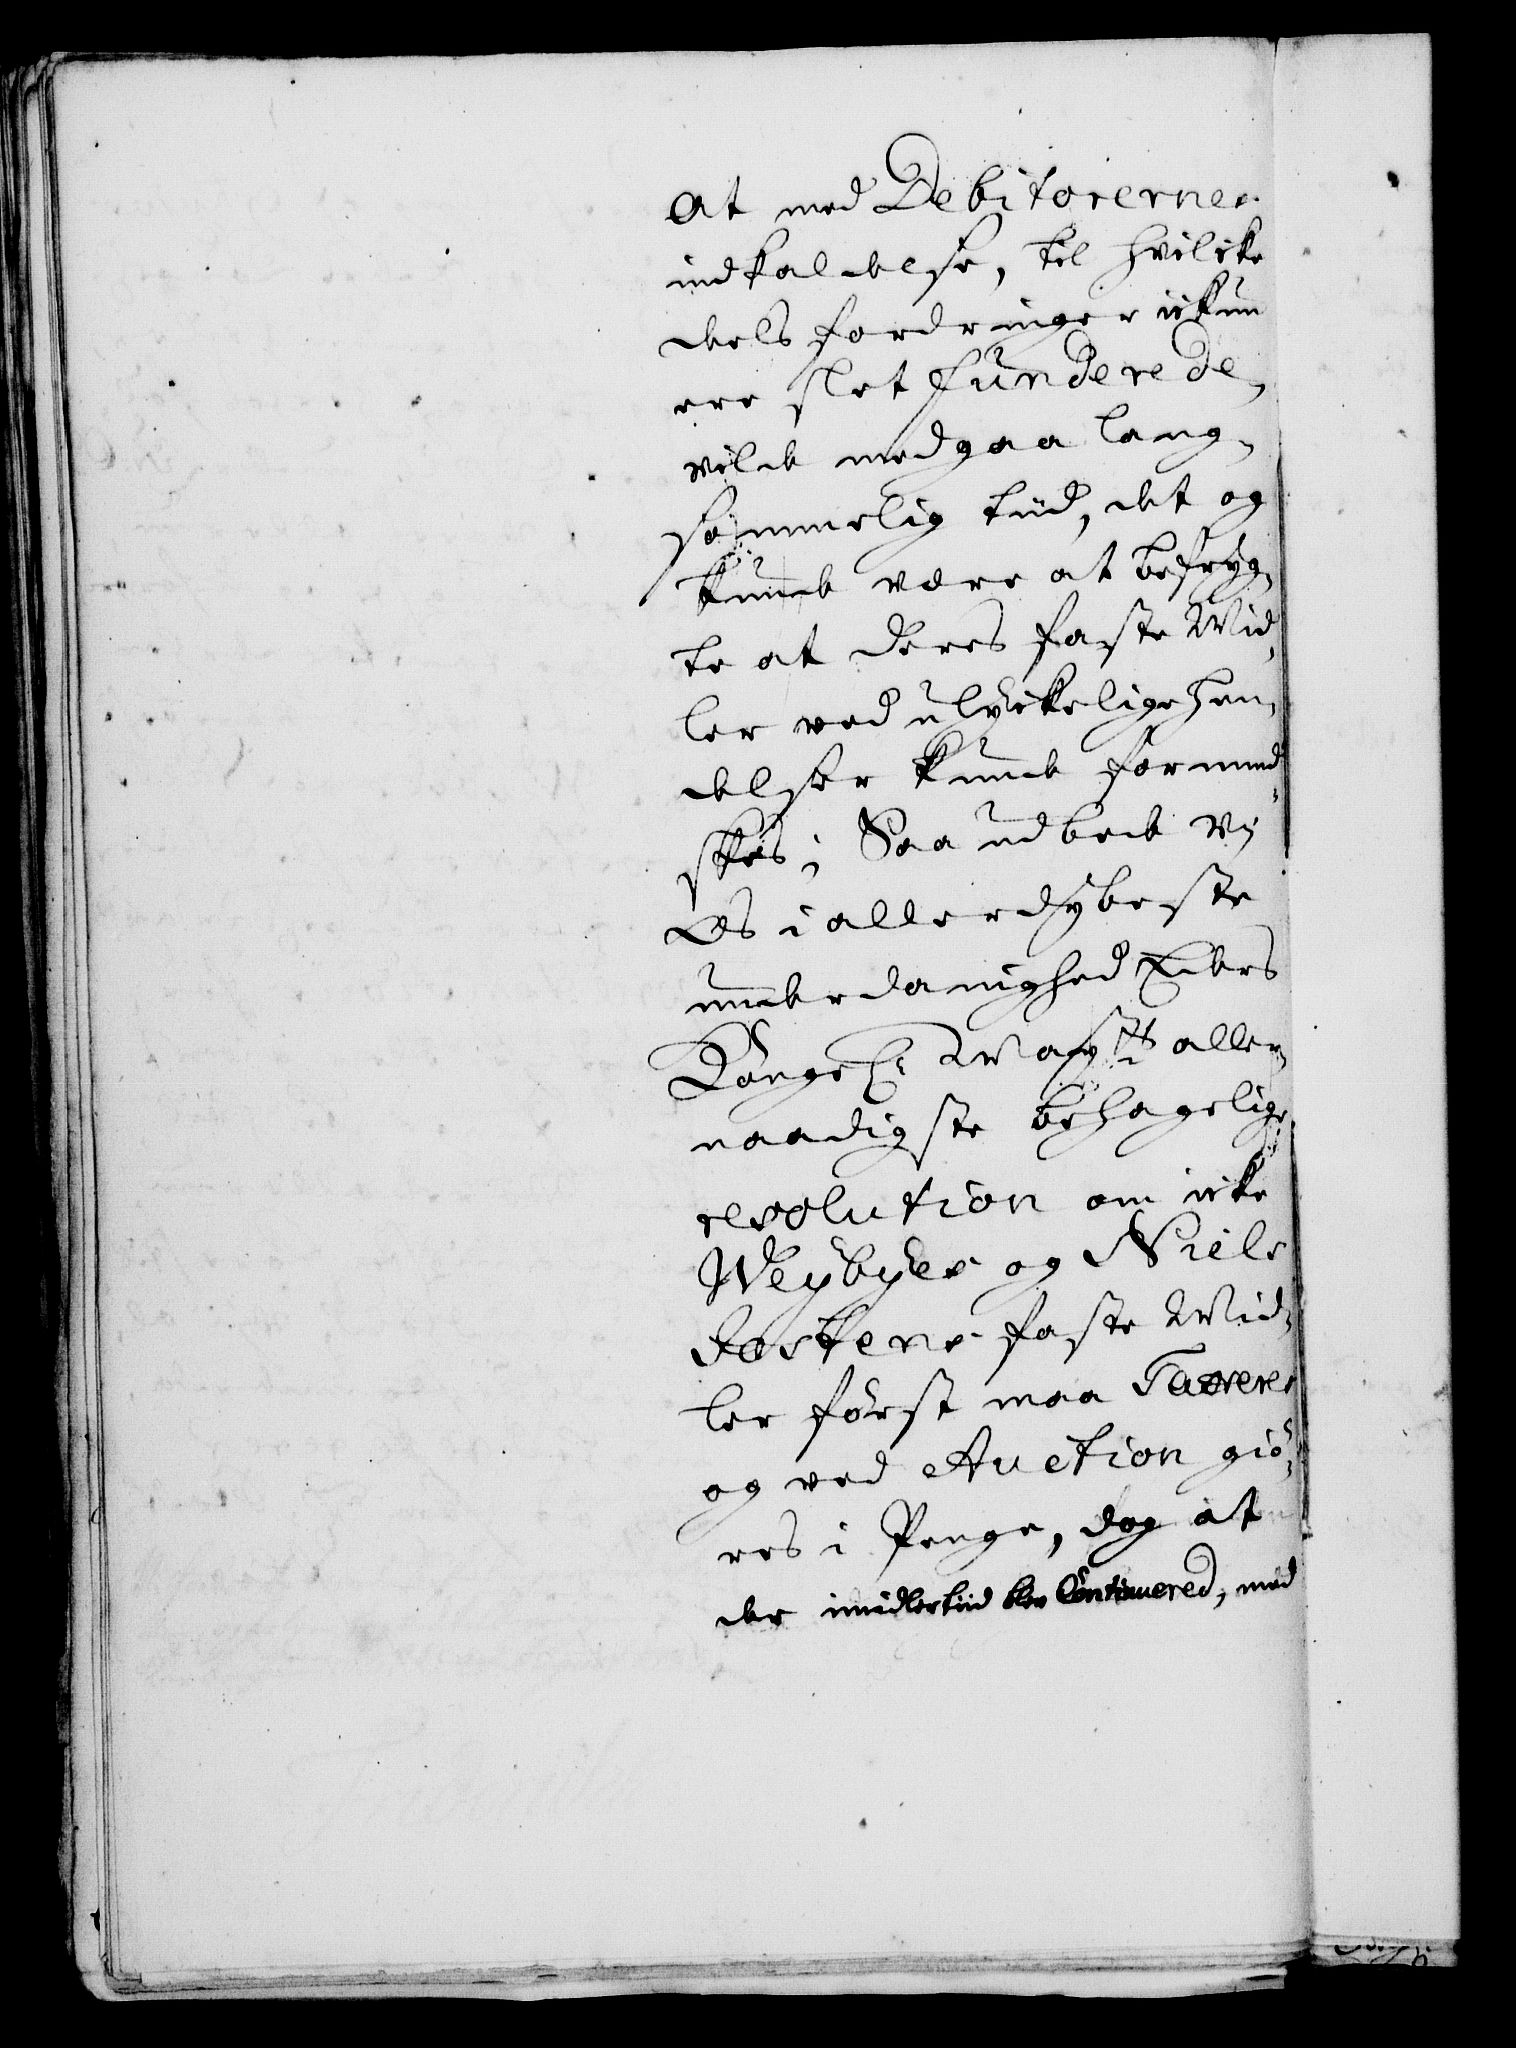 at med Debitorernes
indkaldelse, til hvilcke
dels fordringer ickun
ere slet funderede,
vilde medgaa lang-
sommelig tiid, det og
kunde være at befryg-
te at deres faste Mid-
ler ved ulyckelige hen-
delser kunde formind-
skes; Saa udbede vj
Os i allerdybeste
underdanighed Eders
Kongel: Mayts aller-
naadigste behagelige
resolution om icke
Weybyes og Niels
faste Mid-
ler først maa Taxeres
og ved Auction giö-
res i Penge, dog at
der imidlertiid blev Continuered, med